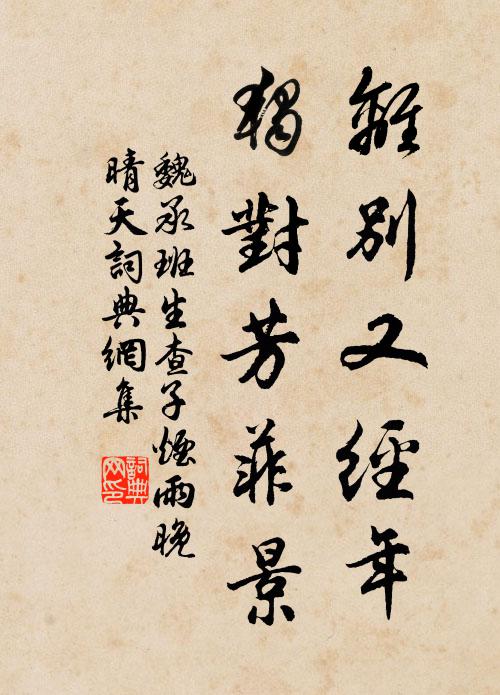 離別又經年
獨對芳菲景
魏承班生查子煙雨晚
晴天詞典網集
詞典網印